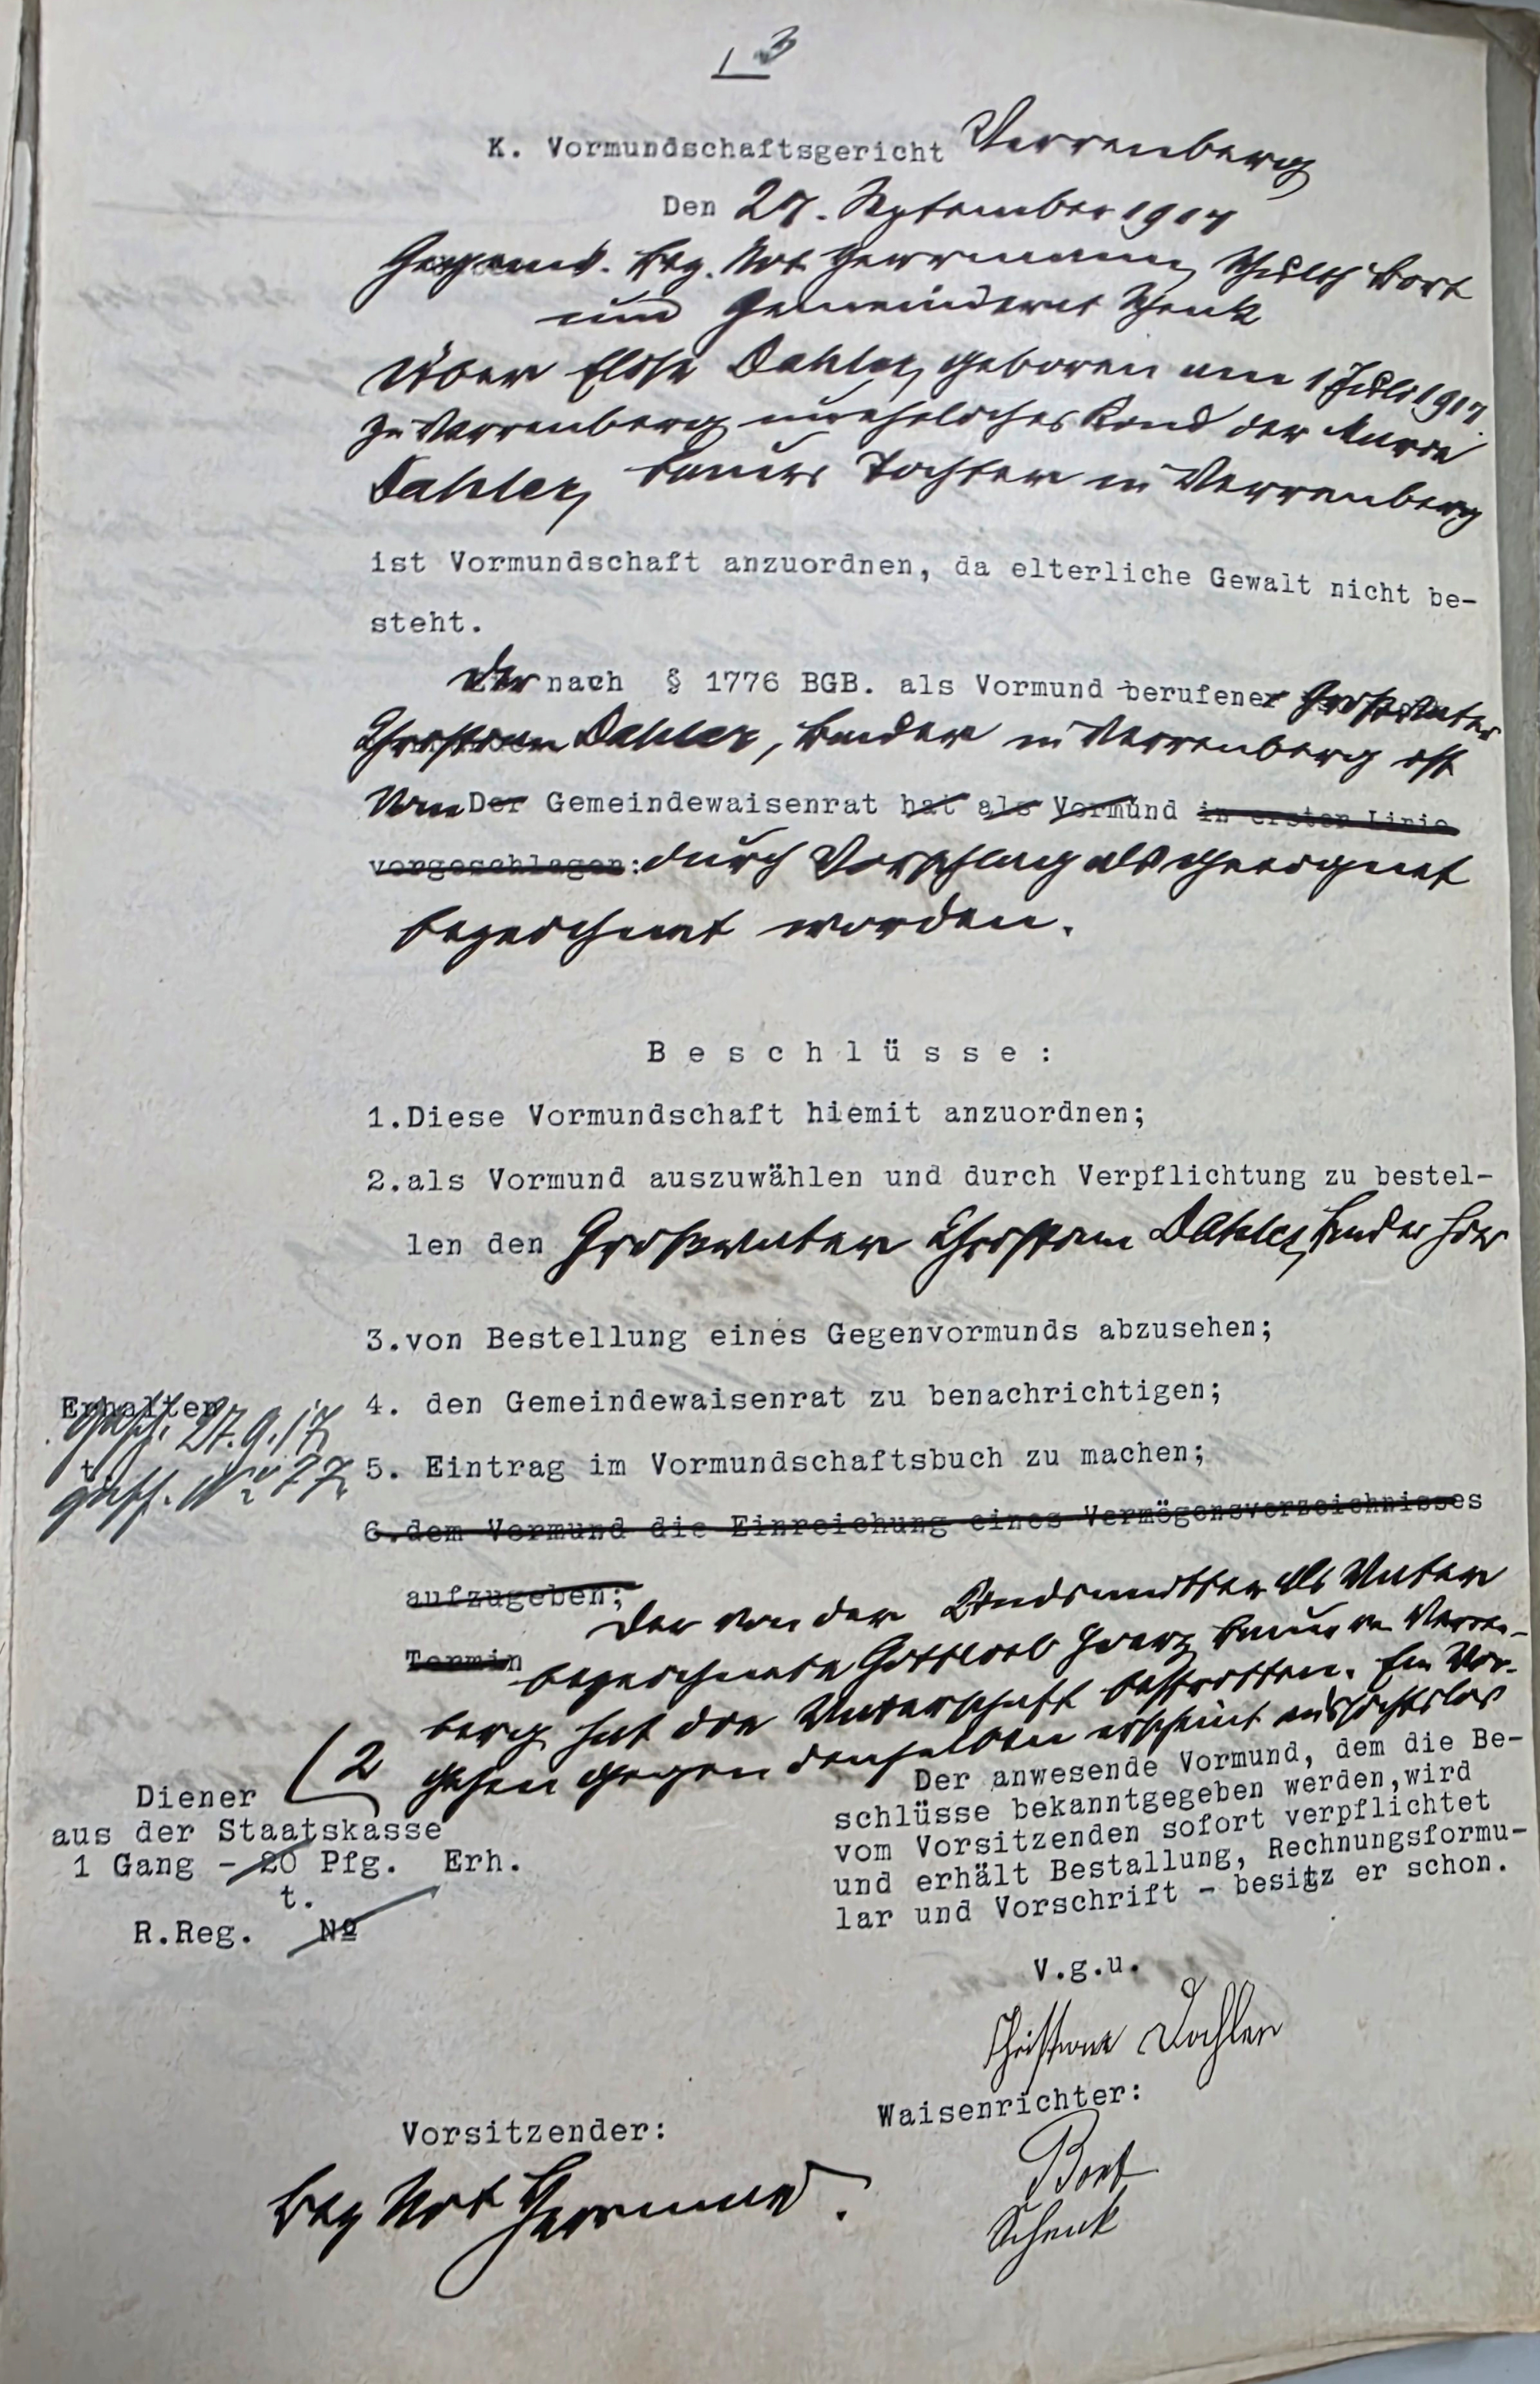 3
K. Vormundschaftsgericht Verrenberg
Den 27. September 1917
Gegenw. Bez. Not. Herrmann, Schulth Bort
und Gemeinderat Schenk
Über Elise Dahler, geboren am 1 Juli 1917
zu Verrenberg uneheliches Kind der Marie
Dahler, Tochter in Verrenberg
ist Vormundschaft anzuordnen, da elterliche Gewalt nicht be-
steht.
Der nach § 1776 BGB. als Vormund berufene Großvater
Christian Dahler, in Verrenberg ist
Vom Der Gemeindewaisenrat hat als Vormund in erster Linie
vorgeschlagen: durch Vorschlag als geeignet
bezeichnet worden.
Beschlüsse:
1.Diese Vormundschaft hiemit anzuordnen;
2.als Vormund auszuwählen und durch Verpflichtung zu bestel-
len den Großvater Christian Dahler, hier
3.von Bestellung eines Gegenvormunds abzusehen;
Erhalten
4. den Gemeindewaisenrat zu benachrichtigen;
27.9.17
5. Eintrag im Vormundschaftsbuch zu machen;
6.dem Vormund die Einreichung eines Vermögensverzeichnisses
aufzugeben;
Der von der Kindsmutter als Vater
Termin bezeichnete Gottlieb Bauer in Verren-
berg hat die Vaterschaft bestritten. Ein Vor-
gehen gegen denselben erscheint aussichtslos
(2
Diener
aus der Staatskasse
1 Gang - 20 Pfg. Erh.
t.
R.Reg. №
Der anwesende Vormund, dem die Be-
schlüsse bekanntgegeben werden, wird
vom Vorsitzenden sofort verpflichtet
und erhält Bestallung, Rechnungsformu-
lar und Vorschrift - besitz er schon.
V.g.u.
Christian Dahler
Waisenrichter:
Bort
Schenk
Vorsitzender:
Bez Not Herrmann.